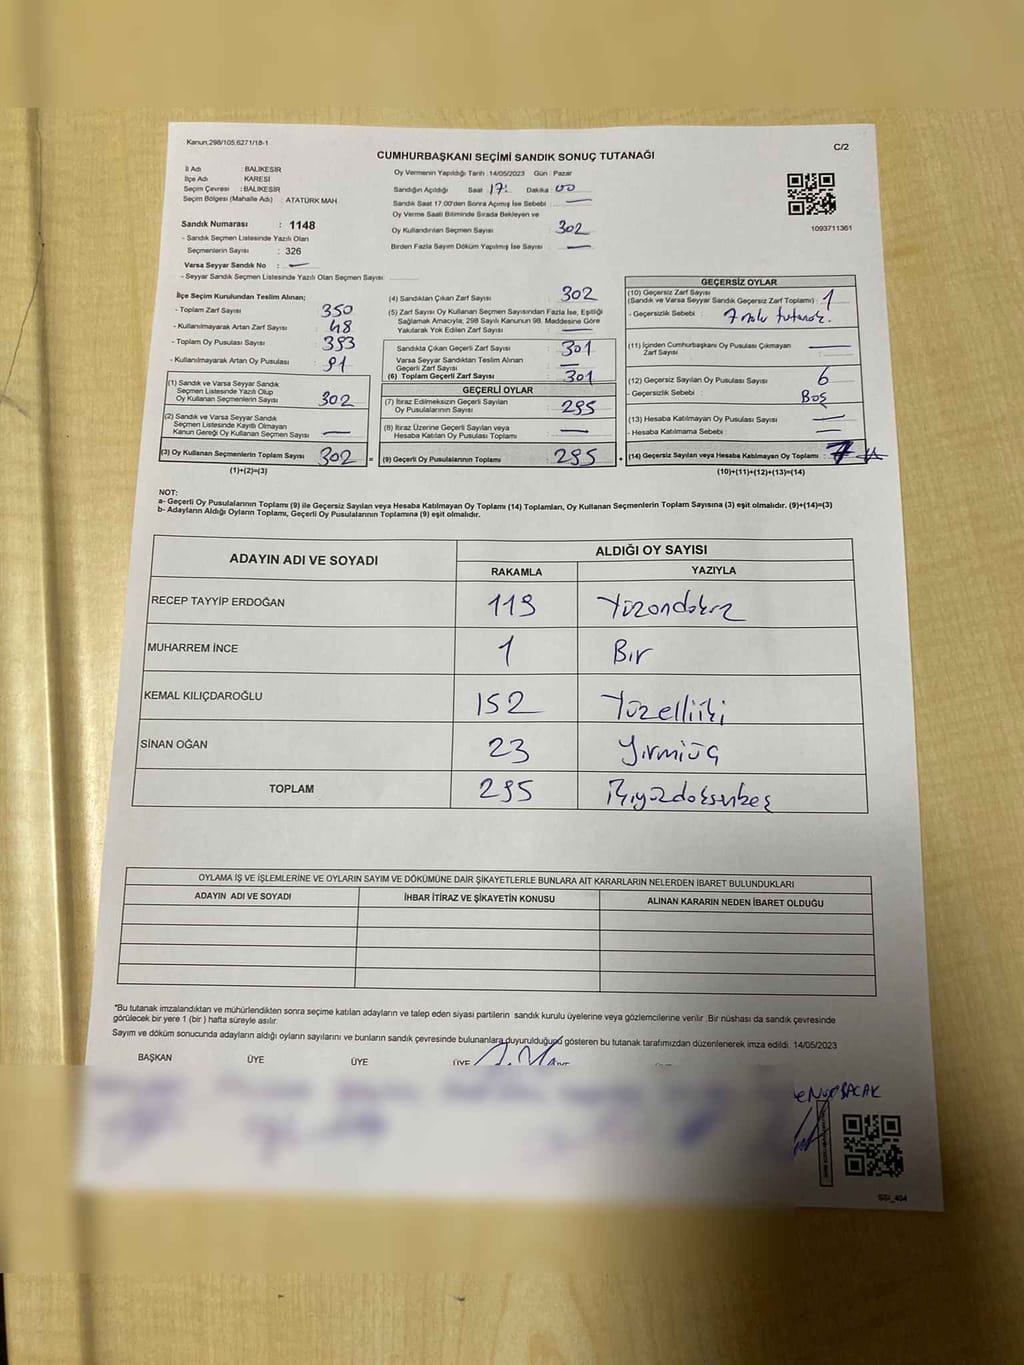 Kanun;298/105;6271/18-1
C/2
CUMHURBAŞKANI SEÇİMİ SANDIK SONUÇ TUTANAĞI
İl Adı : BALIKESİR
İlçe Adı : KARESİ
Seçim Çevresi : BALIKESİR
Seçim Bölgesi (Mahalle Adı) : ATATÜRK MAH.
Sandık Numarası : 1148
- Sandık Seçmen Listesinde Yazılı Olan
Seçmenlerin Sayısı : 326
Varsa Seyyar Sandık No : —
- Seyyar Sandık Seçmen Listesinde Yazılı Olan Seçmen Sayısı
Oy Vermenin Yapıldığı Tarih :14/05/2023 Gün : Pazar
Sandığın Açıldığı Saat : 17: Dakika : 00
Sandık Saat 17:00'den Sonra Açımış İse Sebebi : —
Oy Verme Saati Bitiminde Sırada Bekleyen ve
Oy Kullandırılan Seçmen Sayısı : 302
Birden Fazla Sayım Döküm Yapılmış İse Sayısı : —
1093711361
İlçe Seçim Kurulundan Teslim Alınan;
- Toplam Zarf Sayısı : 350
- Kullanılmayarak Artan Zarf Sayısı : 48
- Toplam Oy Pusulası Sayısı : 393
- Kullanılmayarak Artan Oy Pusulası : 91
(1) Sandık ve Varsa Seyyar Sandık
Seçmen Listesinde Yazılı Olup
Oy Kullanan Seçmenlerin Sayısı : 302
(2) Sandık ve Varsa Seyyar Sandık
Seçmen Listesinde Kayıtlı Olmayan
Kanun Gereği Oy Kullanan Seçmen Sayısı : —
(3) Oy Kullanan Seçmenlerin Toplam Sayısı : 302 =
(1)+(2)=(3)
(4) Sandıktan Çıkan Zarf Sayısı : 302
(5) Zarf Sayısı Oy Kullanan Seçmen Sayısından Fazla İse, Eşitliği
Sağlamak Amacıyla, 298 Sayılı Kanunun 98. Maddesine Göre
Yakılarak Yok Edilen Zarf Sayısı : —
Sandıkta Çıkan Geçerli Zarf Sayısı : 301
Varsa Seyyar Sandıktan Teslim Alınan
Geçerli Zarf Sayısı : —
(6) Toplam Geçerli Zarf Sayısı : 301
GEÇERLİ OYLAR
(7) İtiraz Edilmeksizin Geçerli Sayılan
Oy Pusulalarının Sayısı : 295
(8) İtiraz Üzerine Geçerli Sayılan veya
Hesaba Katılan Oy Pusulası Toplamı : —
(9) Geçerli Oy Pusulalarının Toplamı : 295 +
GEÇERSİZ OYLAR
(10) Geçersiz Zarf Sayısı
(Sandık ve Varsa Seyyar Sandık Geçersiz Zarf Toplamı) : 1
- Geçersizlik Sebebi : 7 nolu tutanak.
(11) İçinden Cumhurbaşkanı Oy Pusulası Çıkmayan : —
Zarf Sayısı
(12) Geçersiz Sayılan Oy Pusulası Sayısı : 6
- Geçersizlik Sebebi : Boş
(13) Hesaba Katılmayan Oy Pusulası Sayısı : —
- Hesaba Katılmama Sebebi : —
(14) Geçersiz Sayılan veya Hesaba Katılmayan Oy Toplamı : 7
(10)+(11)+(12)+(13)=(14)
NOT:
a- Geçerli Oy Pusulalarının Toplamı (9) ile Geçersiz Sayılan veya Hesaba Katılmayan Oy Toplamı (14) Toplamları, Oy Kullanan Seçmenlerin Toplam Sayısına (3) eşit olmalıdır. (9)+(14)=(3)
b- Adayların Aldığı Oyların Toplamı, Geçerli Oy Pusulalarının Toplamına (9) eşit olmalıdır.
ADAYIN ADI VE SOYADI ALDIĞI OY SAYISI
RAKAMLA YAZIYLA
RECEP TAYYİP ERDOĞAN 119 Yüzondokuz
MUHARREM İNCE 1 Bir
KEMAL KILIÇDAROĞLU 152 Yüzelliiki
SİNAN OĞAN 23 Yirmiüç
TOPLAM 295 İkiyüzdoksanbeş
OYLAMA İŞ VE İŞLEMLERİNE VE OYLARIN SAYIM VE DÖKÜMÜNE DAİR ŞİKAYETLERLE BUNLARA AİT KARARLARIN NELERDEN İBARET BULUNDUKLARI
ADAYIN ADI VE SOYADI İHBAR İTİRAZ VE ŞİKAYETİN KONUSU ALINAN KARARIN NEDEN İBARET OLDUĞU
*Bu tutanak imzalandıktan ve mühürlendikten sonra seçime katılan adayların ve talep eden siyasi partilerin sandık kurulu üyelerine veya gözlemcilerine verilir .Bir nüshası da sandık çevresinde
görülecek bir yere 1 (bir ) hafta süreyle asılır.
Sayım ve döküm sonucunda adayların aldığı oyların sayılarını ve bunların sandık çevresinde bulunanlara duyurulduğunu gösteren bu tutanak tarafımızdan düzenlenerek imza edildi. 14/05/2023
BAŞKAN ÜYE ÜYE ÜYE
BACAK
SSI_404